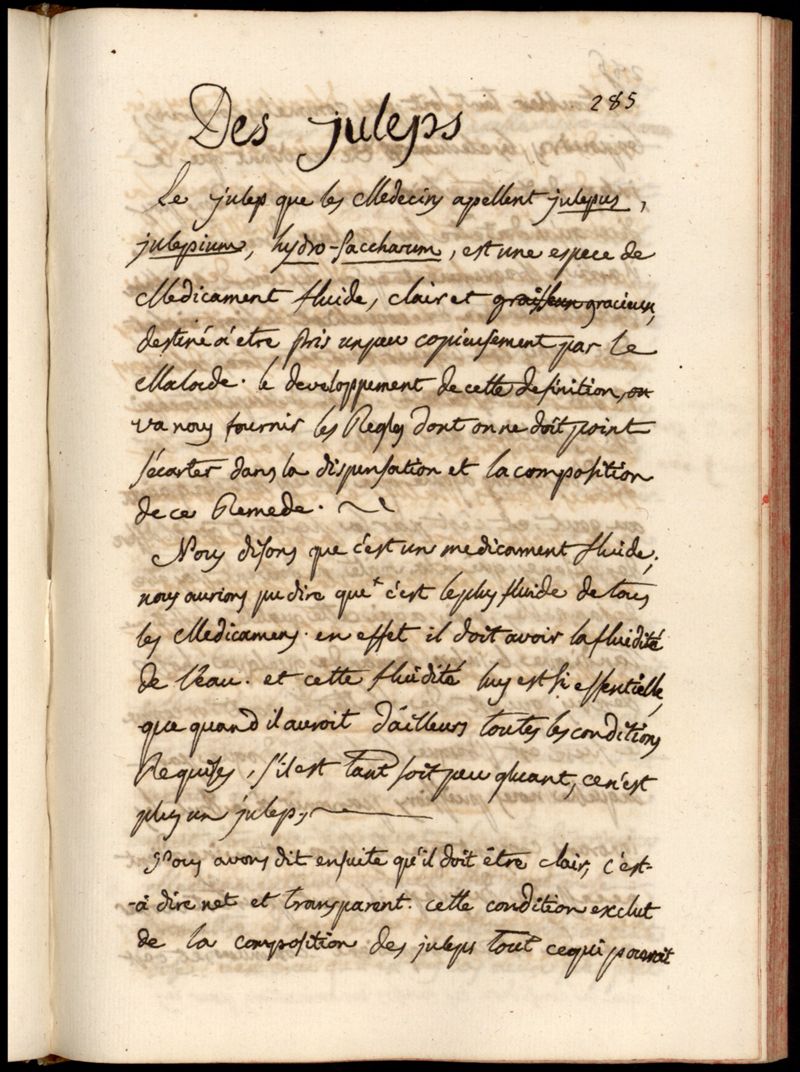 285
Des juleps
Le julep que les Medecins apellent julepus,
julepium, hydro-saccharum, est une espece de
Medicament fluide, clair et gracieux,
destiné à etre pris un peu copieusement par le
Malade. le developpement de cette definition,
va nous fournir les Regles dont on ne doit point
s'écarter dans la dispensation et la composition
de ce Remede.
Nous disons que c'est un medicament fluide;
nous aurions pu dire que c'est le plus fluide de tous
les Medicamens. en effet il doit avoir la fluidité
de l'eau. et cette fluidité luy est si essentielle,
que quand il auroit d'ailleurs toutes les conditions
Requises, s'il est tant soit peu gluant, ce n'est
plus un julep,
Nous avons dit ensuite qu'il doit être clair, c'est-
-à dire net et transparent. cette condition exclut
de la composition des juleps tout ce qui pouroit